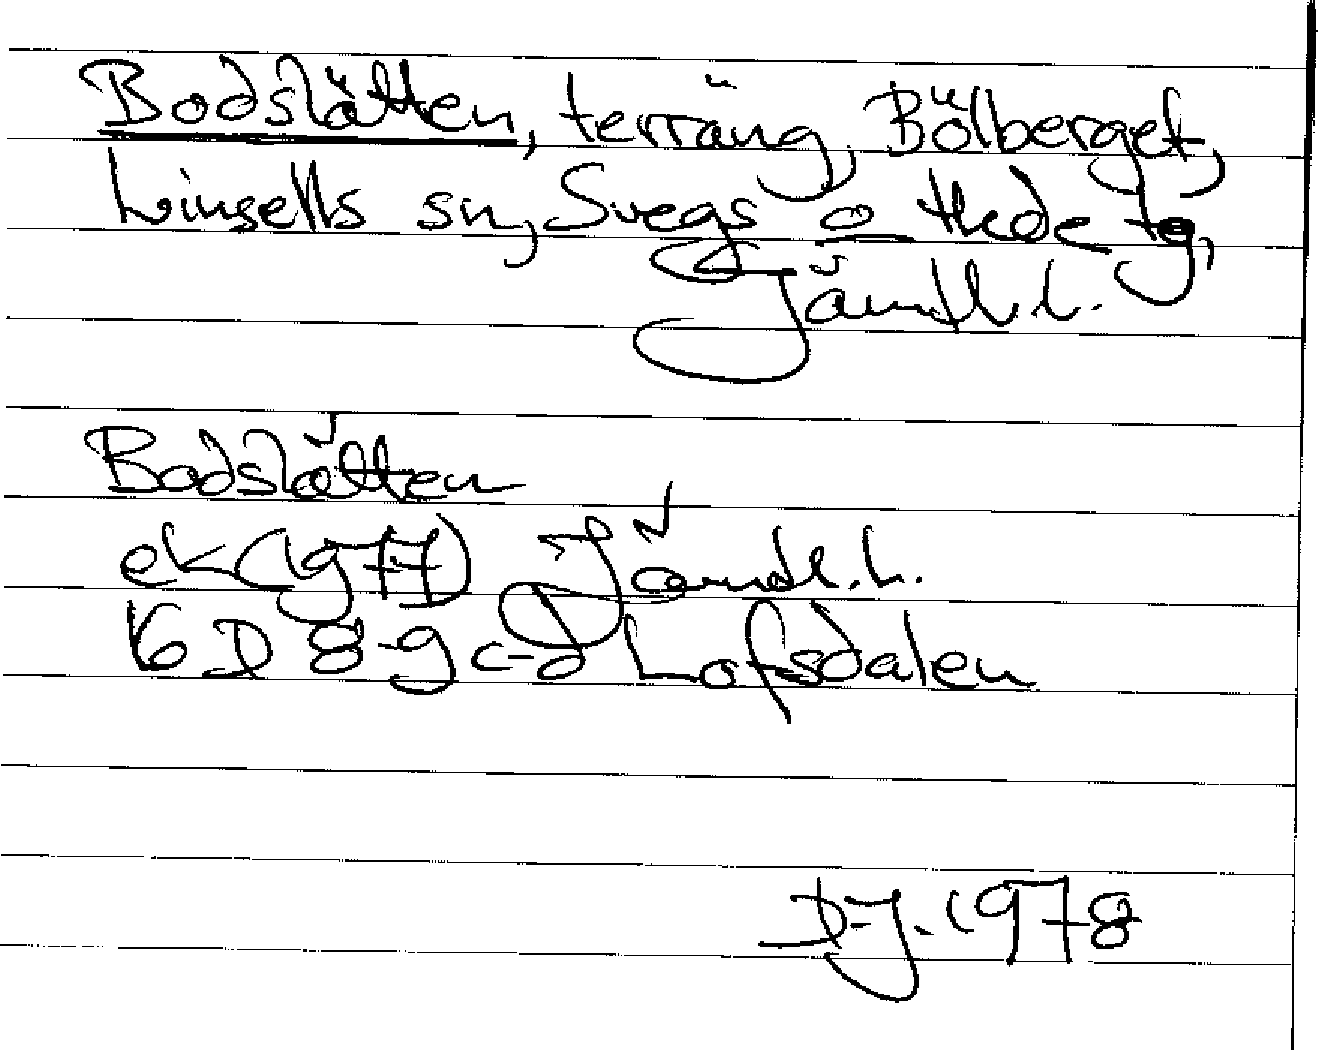 Bodslätten, terräng, Bölberget,
Linsells sn, Svegs o Hede tg,
Jämtl. l.
Bodslätten
ek (1977) Jämtl. l.
16 D 8-9 c-d Lofsdalen
D.J. 1978